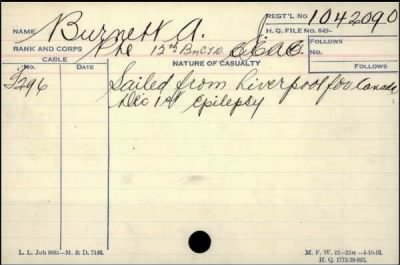 REGT'L NO 1042090
NAME Burnett A.
H. Q. FILE No. 649-
RANK AND CORPS Pte 12th Bn C.T.D.
FOLLOWS
No.
CABLE
NATURE OF CASUALTY
FOLLOWS
No. DATE
296 Sailed from Liverpool for Canada
Dec 1st Epilepsy
L. L. Job 8985—M. & D. 7146.
M. F. W. 42—25M —4-10-16.
H. Q. 1772-39-893.